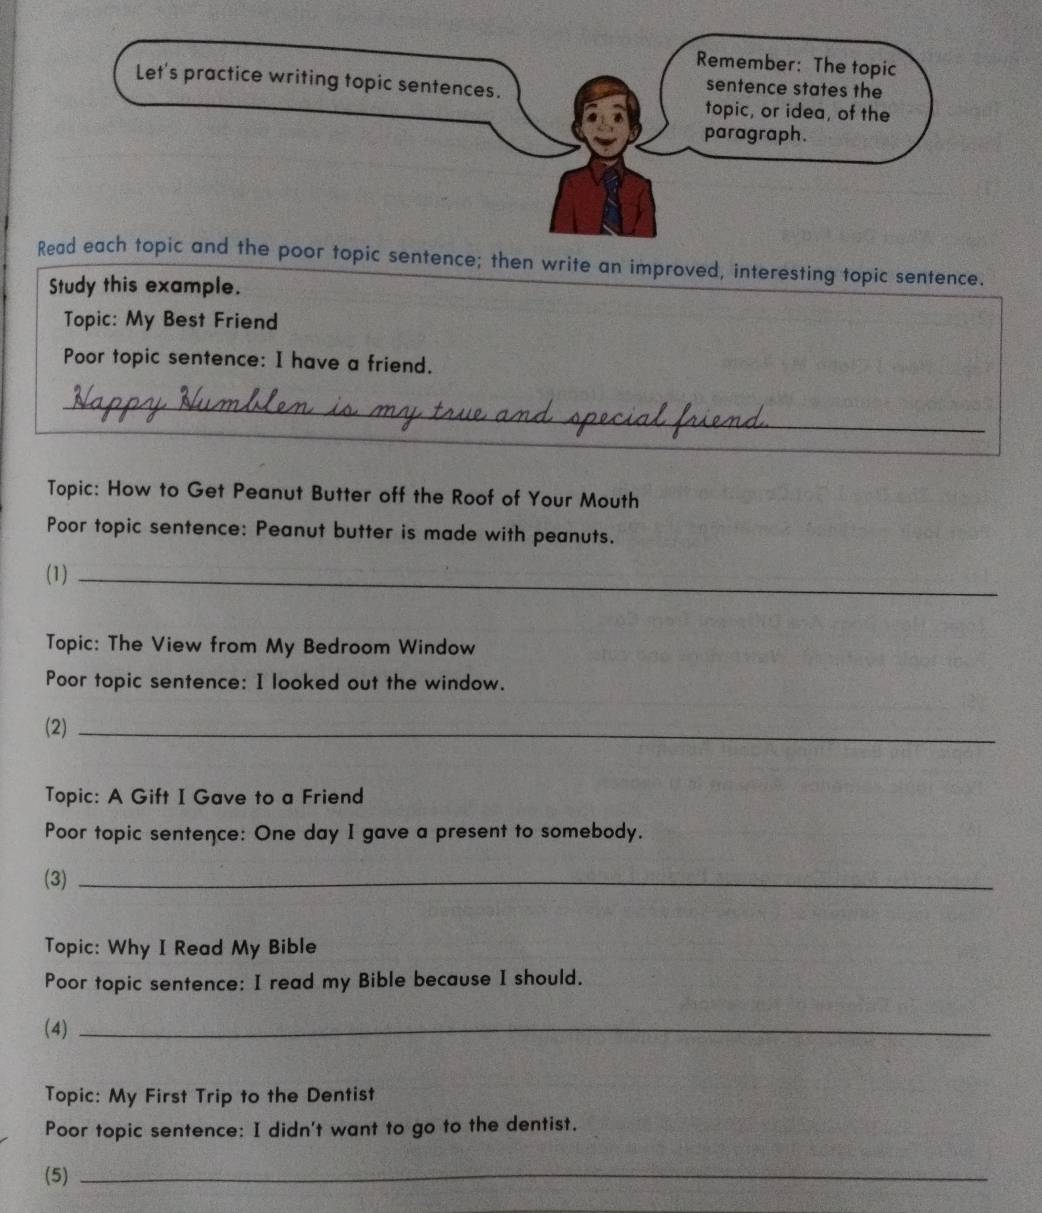 Let's practice writing topic sentences.
Remember: The topic
sentence states the
topic, or idea, of the
paragraph.
Read each topic and the poor topic sentence; then write an improved, interesting topic sentence.
Study this example.
Topic: My Best Friend
Poor topic sentence: I have a friend.
Happy Humblen is my true and special friend.
Topic: How to Get Peanut Butter off the Roof of Your Mouth
Poor topic sentence: Peanut butter is made with peanuts.
(1)
Topic: The View from My Bedroom Window
Poor topic sentence: I looked out the window.
(2)
Topic: A Gift I Gave to a Friend
Poor topic sentence: One day I gave a present to somebody.
(3)
Topic: Why I Read My Bible
Poor topic sentence: I read my Bible because I should.
(4)
Topic: My First Trip to the Dentist
Poor topic sentence: I didn't want to go to the dentist.
(5)